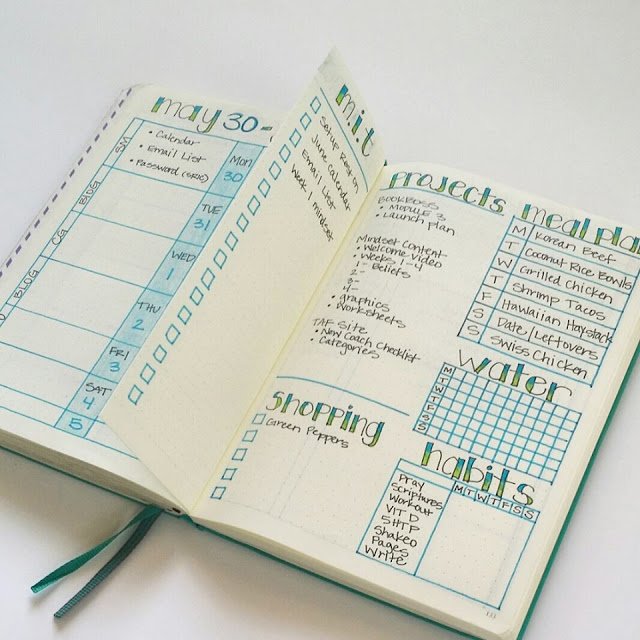 may 30-
SW
BLOG
CG
BLOG
• Calendar
• Email List
• Password (SRIC)
Mon
30
TUE
31
WED
1
THU
2
FRI
3
SAT
4
5
m.i.t
Setup Rest on
June calendar
Email List
Week 1 mindset
projects
BOOKBOSS
• MODULE 3
• Launch plan
Mindset Content
• Welcome video
• Weeks 1-4
1- Beliefs
2-
3-
4-
• graphics
• Worksheets
TAF SITE
• New Coach Checklist
• Categories
Shopping
Green Peppers
meal plan
M Korean Beef
T Coconut Rice Bowls
W Grilled Chicken
T Shrimp Tacos
F Hawaiian Haystack
S Date/Leftovers
S Swiss Chicken
water
M
T
W
T
F
S
S
habits
M T W T F S S
Pray
Scriptures
Workout
VIT D
5HTP
Shakeo
Pages
Write